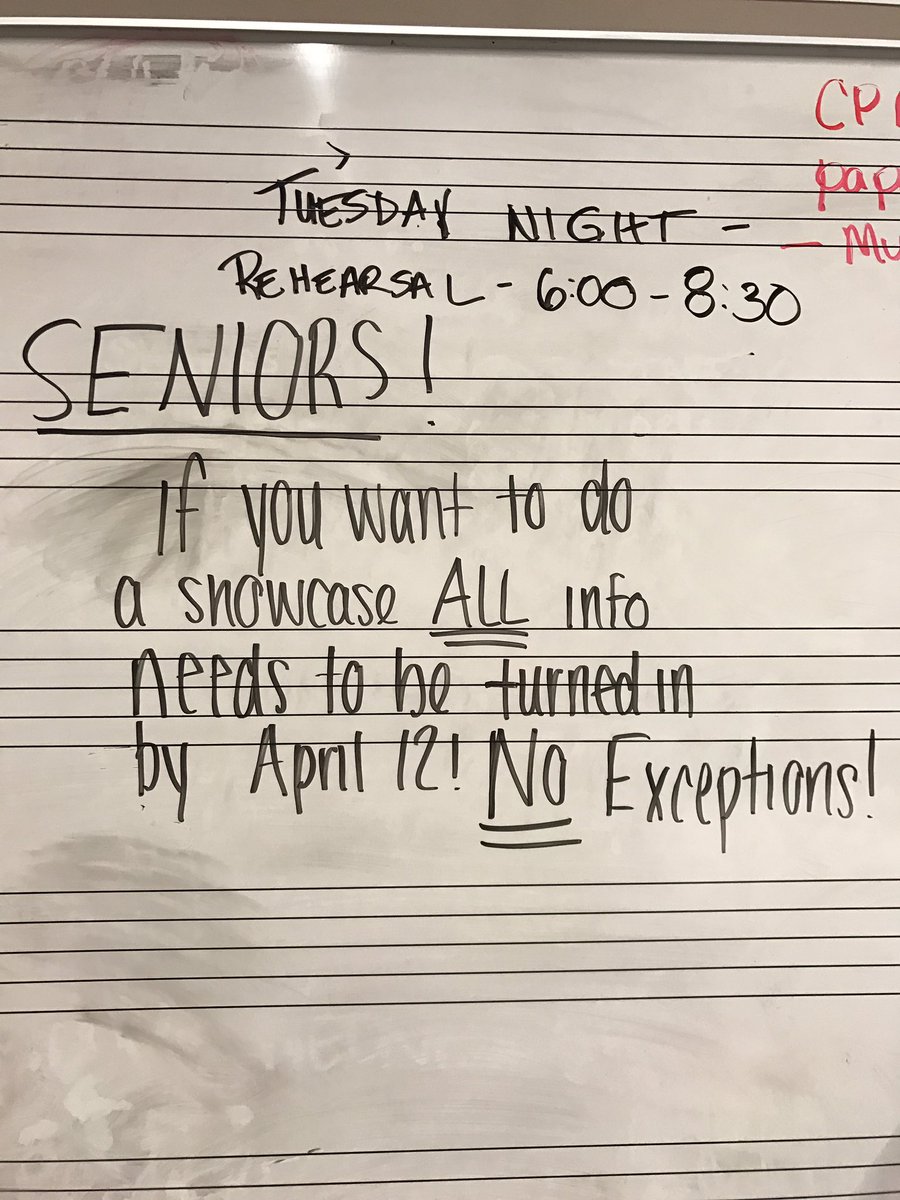 TUESDAY NIGHT -
REHEARSAL - 6:00 - 8:30
SENIORS!
If you want to do
a showcase ALL info
needs to be turned in
by April 12! No Exceptions!
CP
pap
- Mu